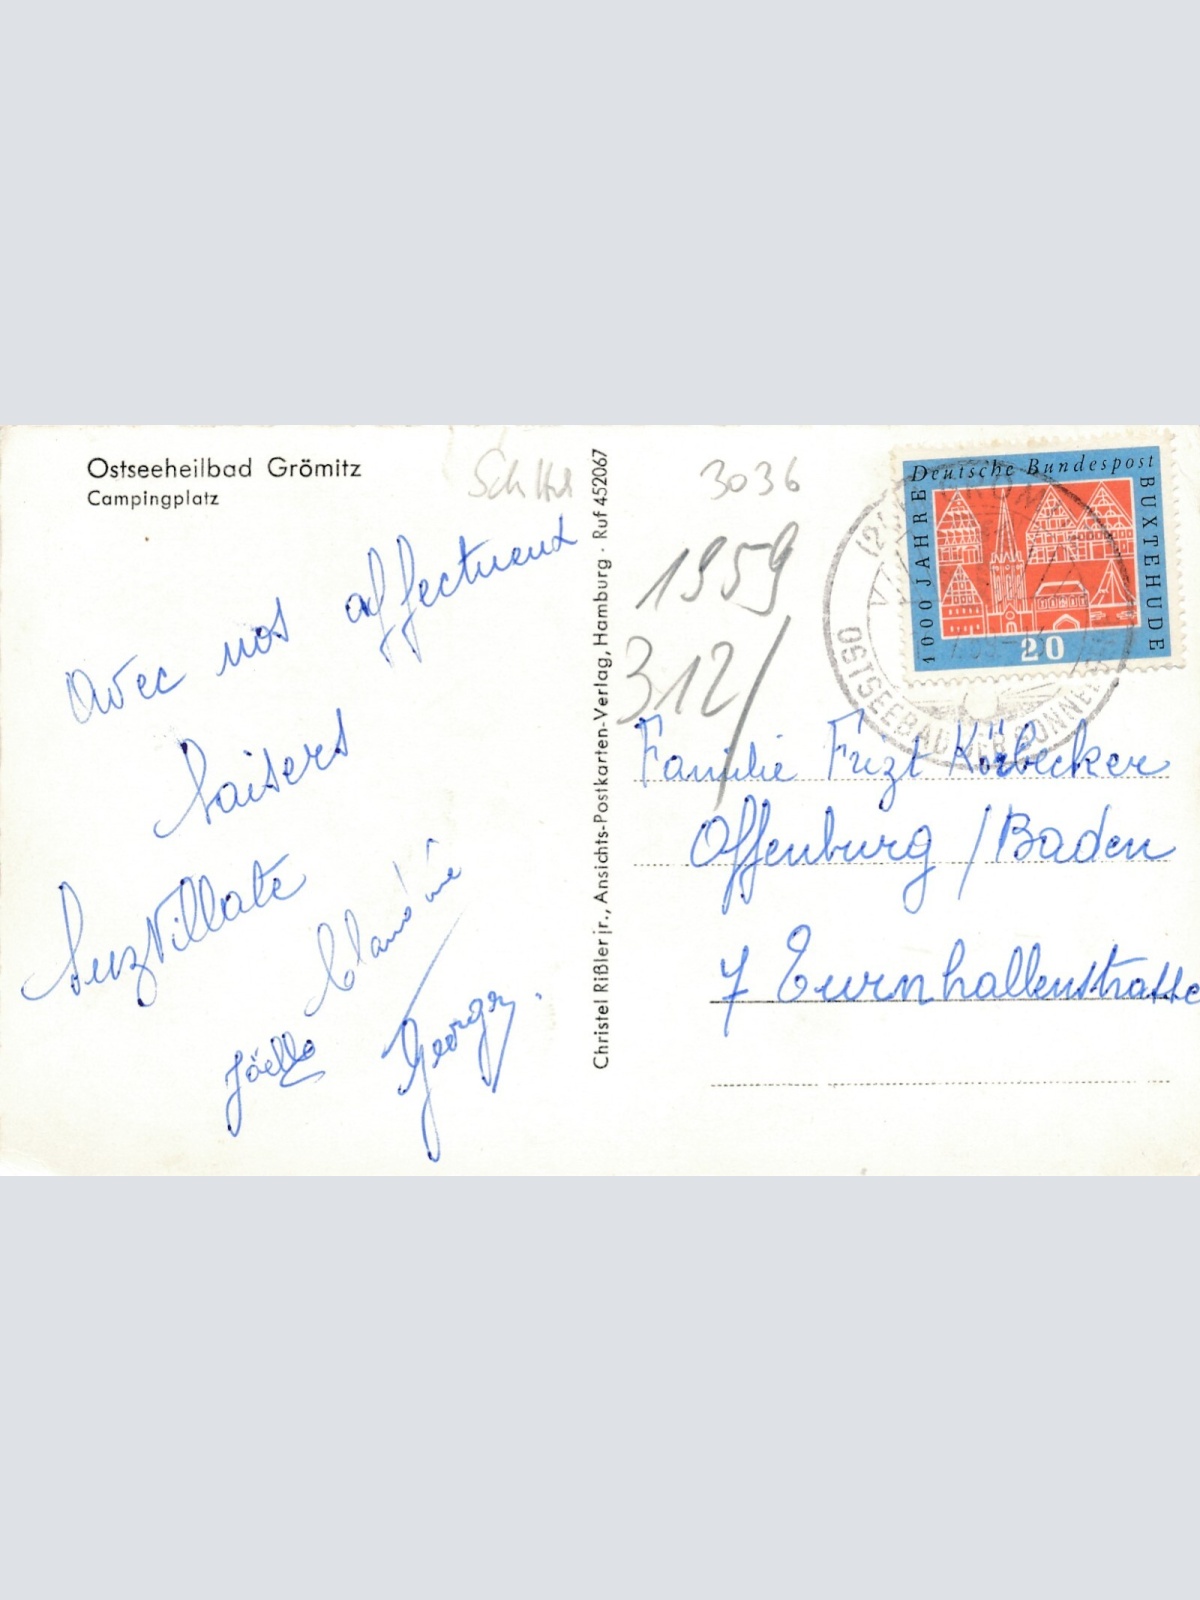 Ostseeheilbad Grömitz
Campingplatz
Avec nos affectueux
baisers
Suz Villate
Joëlle
Georgy.
Christel Rißler jr., Ansichts-Postkarten-Verlag, Hamburg · Ruf 452067
3036
1959
312/
Deutsche Bundespost
1000 JAHRE
BUXTEHUDE
20
OSTSEEBAD DER SONNENSEITE
Familie Fritz Körbecker
Offenburg / Baden
7 Turnhallenstrasse